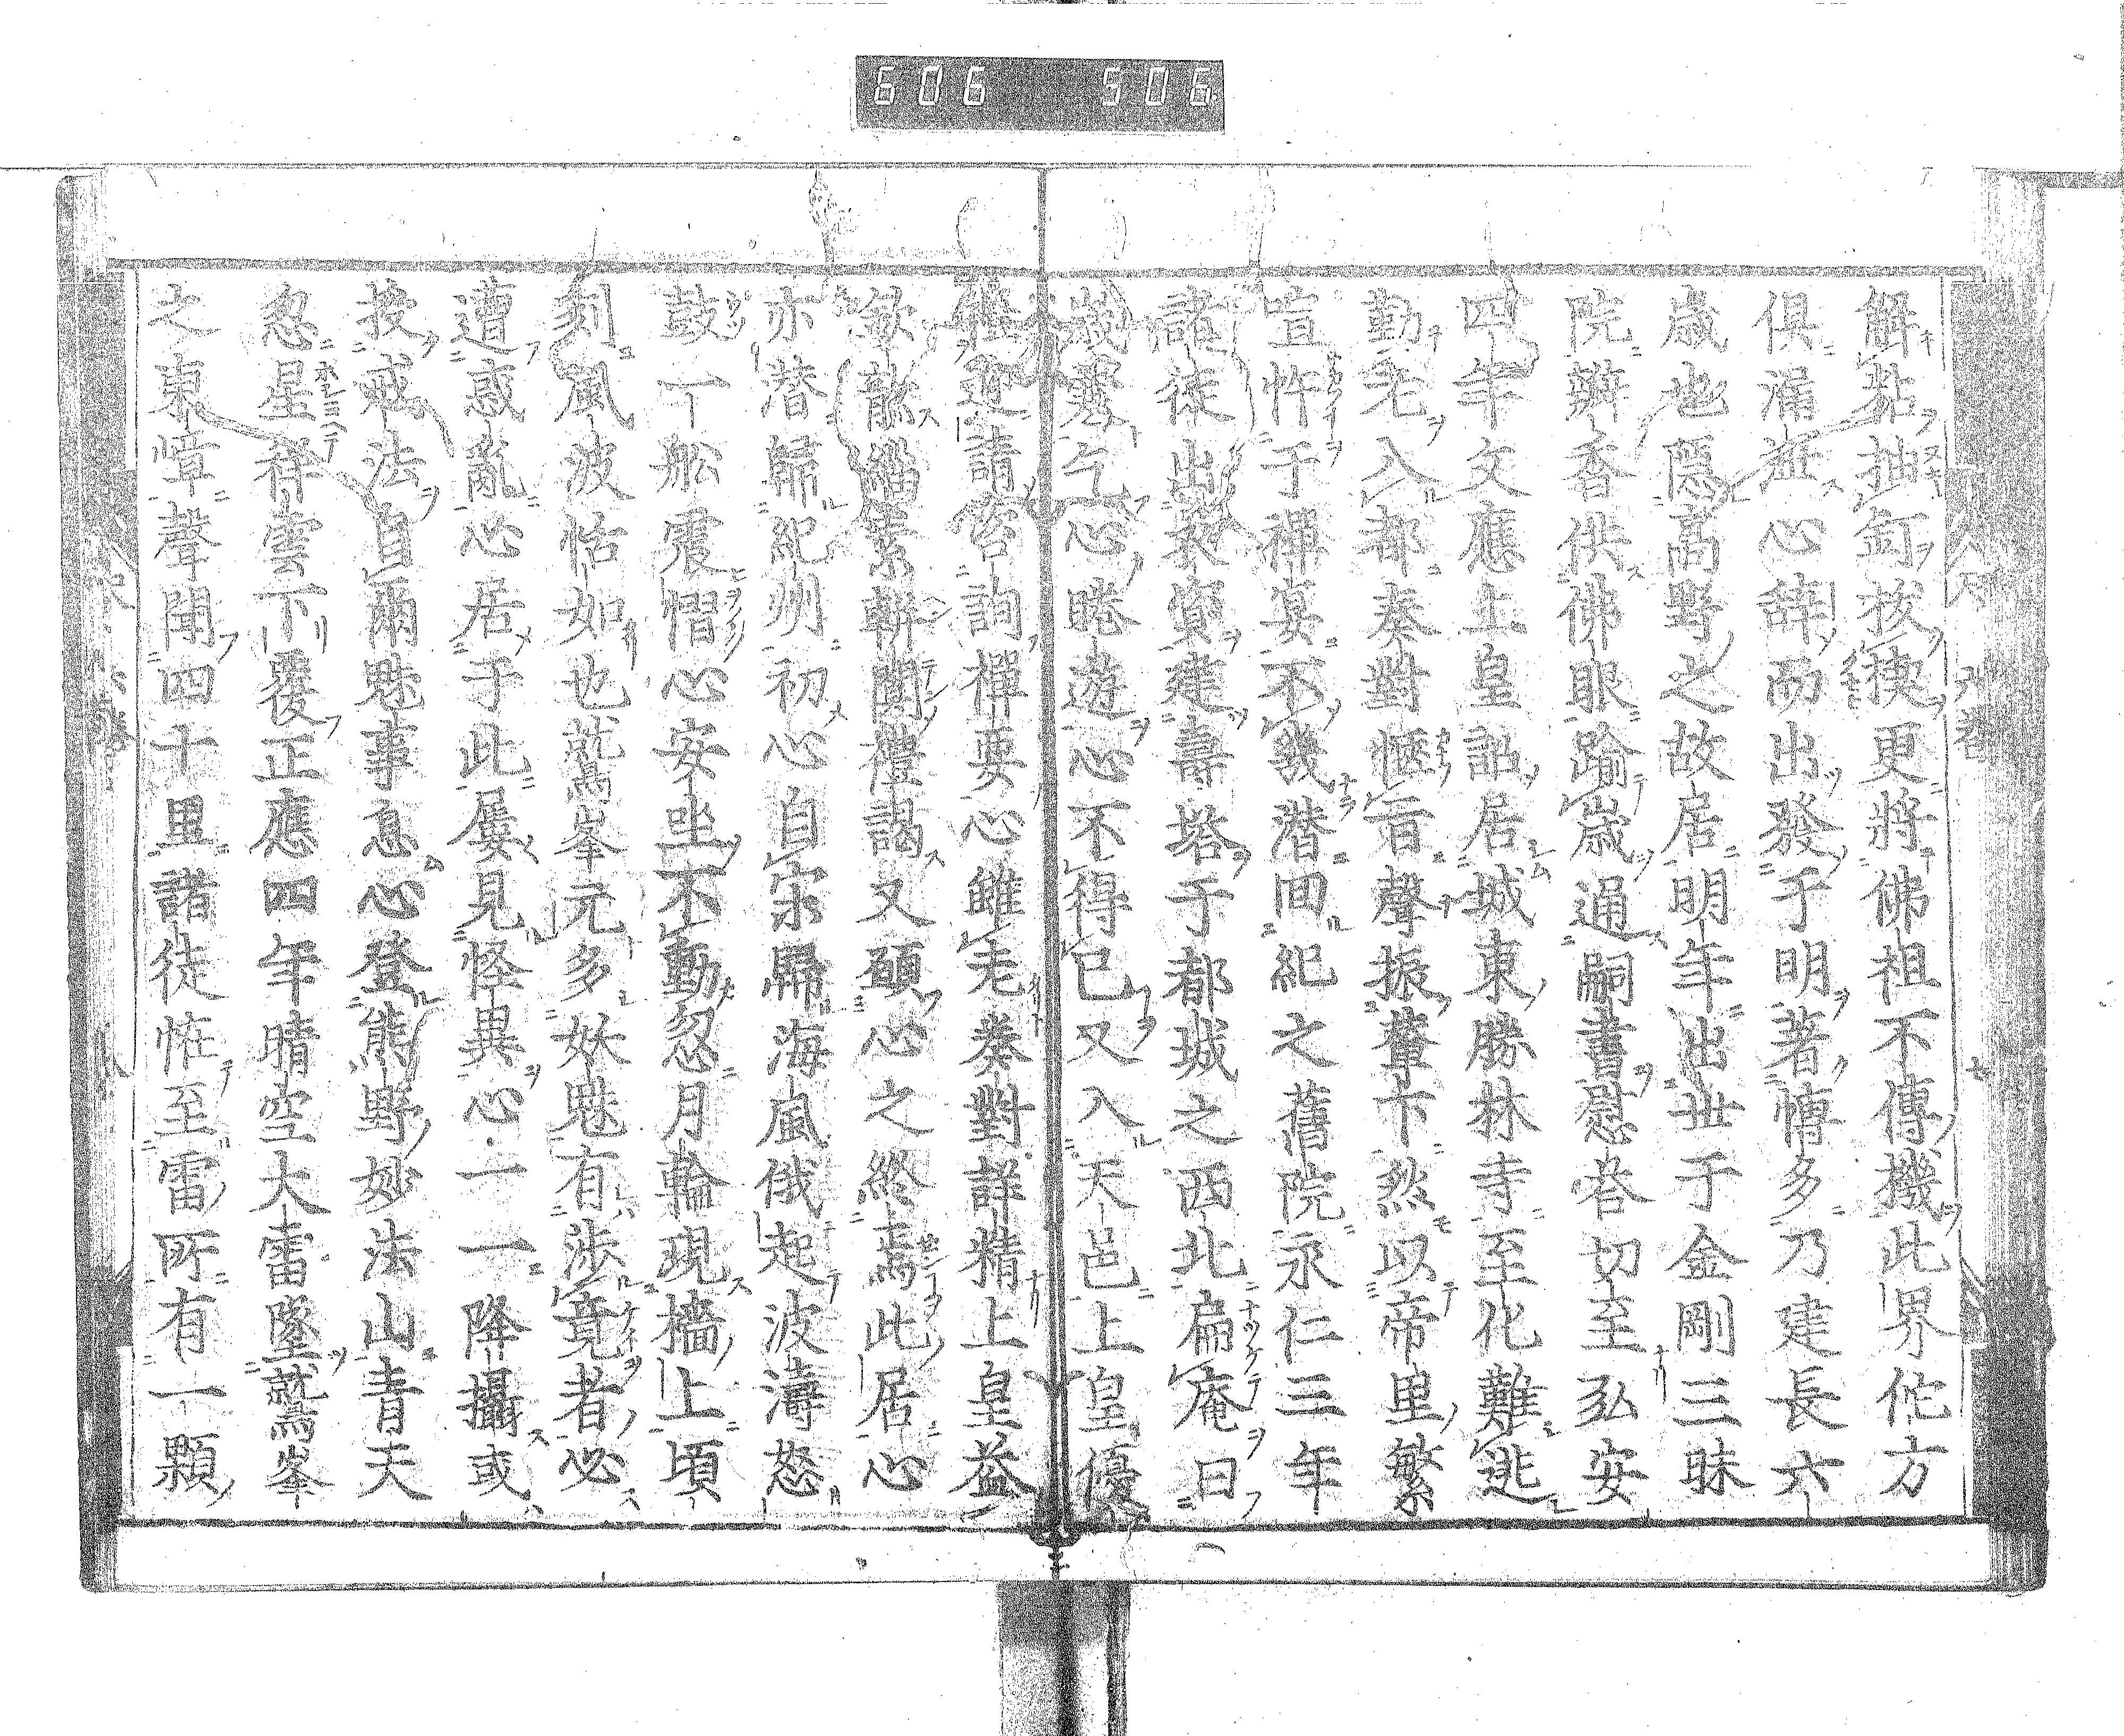 606 506
解粘抽釘拔楔更將佛祖不傳機此界佗方
俱漏泄心辭而出發于明著博多乃建長六
歳也隱高野之故居明年出世于金剛三昧
院辨香供佛眼踰歳通嗣書慰荅切至弘安
四年文應上皇詔居城東勝林寺至化難逃
勤老入都奏對愜旨聲振輦下然以帝里繁
喧忤于禪寞不幾潜回紀之舊院永仁三年
諸徒出衣資建壽塔于都城之西北扁庵曰
歳寒乞心晩遊心不得已又入天邑上皇優
迎請咨詢禪要心雖老奏對詳精上皇益
歆龍緇素輧闐禮謁又願心之終焉此居心
亦潜歸紀州初心自宋歸海嵐俄起波濤怒
鼓一舩震慴心安坐不動忽月輪現檣上頃
刻風波恬如也鷲峯元多妖魅有渉竟者必
遭惑亂心居于此屢見怪異心一一降攝或
授戒法自爾魅事息心登熊野妙法山青天
忽星祥雲下覆正應四年晴空大雷墜鷲峯
之東嶂聲聞四十里諸徒恠至雷所有一顆
七